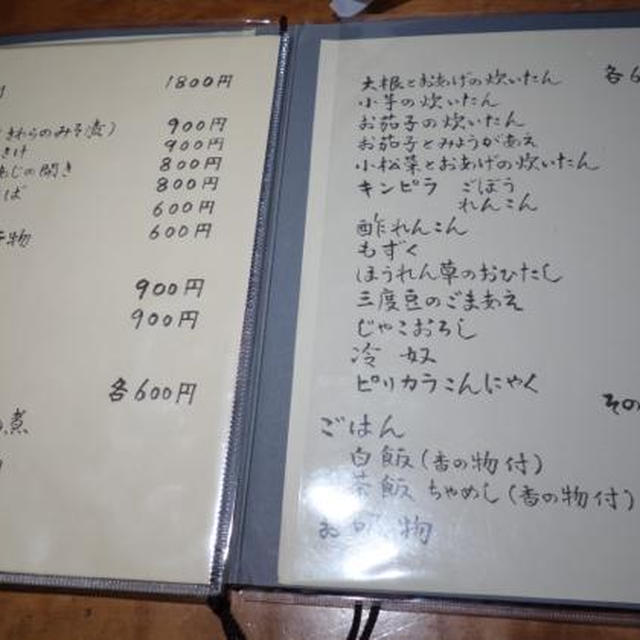 1800円
きわらのみそ漬) 900円
さけ 900円
あじの開き 800円
さば 800円
600円
干物 600円
900円
900円
各600円
煮
大根とおあげの炊いたん 各6
小芋の炊いたん
お茄子の炊いたん
お茄子とみょうがあえ
小松菜とおあげの炊いたん
キンピラ ごぼう
れんこん
酢れんこん
もずく
ほうれん草のおひたし
三度豆のごまあえ
じゃこおろし
冷奴
ピリカラこんにゃく
その
ごはん
白飯(香の物付)
茶飯 ちゃめし(香の物付)
お 物